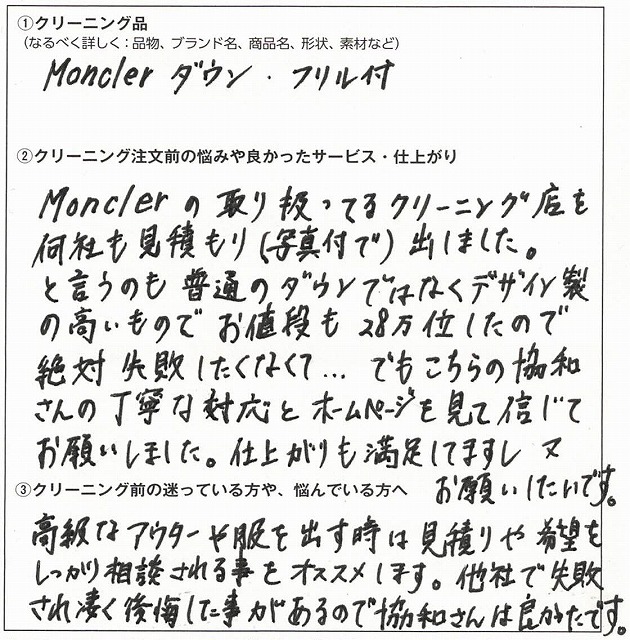 ①クリーニング品
(なるべく詳しく:品物、ブランド名、商品名、形状、素材など)
Moncler ダウン・フリル付
②クリーニング注文前の悩みや良かったサービス・仕上がり
Monclerの取り扱ってるクリーニング店を
何社も見積もり(写真付で)出しました。
と言うのも普通のダウンではなくデザイン製
の高いものでお値段も28万位したので
絶対失敗したくなくて...でもこちらの協和
さんの丁寧な対応とホームページを見て信じて
お願いしました。仕上がりも満足してますし又
お願いしたいです。
③クリーニング前の迷っている方や、悩んでいる方へ
高級なアウターや服を出す時は見積りや希望を
しっかり相談される事をオススメします。他社で失敗
され凄く後悔した事があるので協和さんは良かたです。